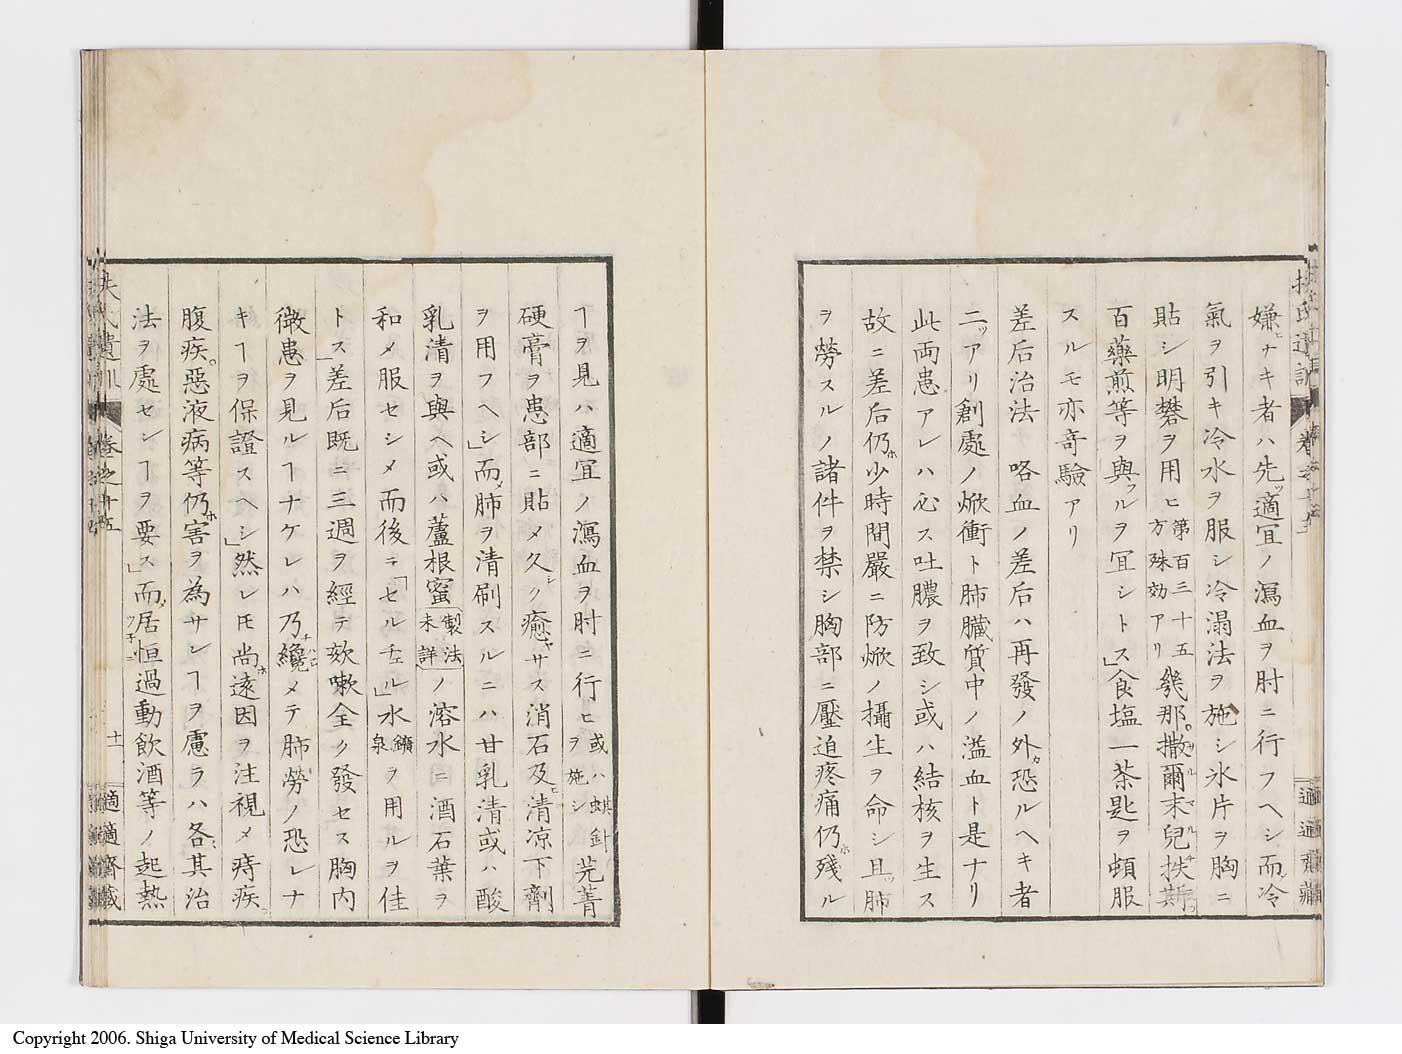 嫌ヒナキ者ハ先ッ適冝ノ瀉血ヲ肘ニ行フヘシ而冷
氣ヲ引キ冷水ヲ服シ冷溻法ヲ施シ氷片ヲ胸ニ
貼シ明礬ヲ用ヒ第百三十五方殊効アリ幾那撒爾末兒抶斯
百藥煎等ヲ與フルヲ冝シトス」食塩一茶匙ヲ頓服
スルモ亦竒驗アリ
差后治法 咯血ノ差后ハ再發ノ外恐ルヘキ者
二ッアリ創處ノ焮衝ト肺臓質中ノ溢血ト是ナリ
此両患アレハ必ス吐膿ヲ致シ或ハ結核ヲ生ス
故ニ差后仍ホ少時間嚴ニ防焮ノ攝生ヲ命シ且ッ肺
ヲ勞スルノ諸件ヲ禁シ胸部ニ壓迫疼痛仍ホ殘ル
ヿヲ見ハ適冝ノ瀉血ヲ肘ニ行ヒ或ハ蜞針ヲ施シ芫菁
硬膏ヲ患部ニ貼メ久シク癒ヤサス消石及ヒ清凉下劑
ヲ用フヘシ」而メ肺ヲ清刷スルニハ甘乳清或ハ酸
乳清ヲ與ヘ或ハ蘆根蜜製法未詳ノ溶水ニ酒石葉ヲ
和メ服セシメ而後ニ「セルチェル」水鑛泉ヲ用ルヲ佳
トス」差后既ニ三週ヲ經テ欬嗽全ク發セス胸内
微患ヲ見ルヿナケレハ乃チ纔メテ肺勞ノ恐レナ
キヿヲ保證スヘシ」然レ𪜈尚ホ遠因ヲ注視メ痔疾
腹疾惡液病等仍ホ害ヲ為サレヿヲ慮ラハ各其治
法ヲ處センヿヲ要ス」而居恒過動飲酒等ノ起熱
扶氏遺訓 巻之十五 十一 適適齋藏
Copyright 2006. Shiga University of Medical Science Library